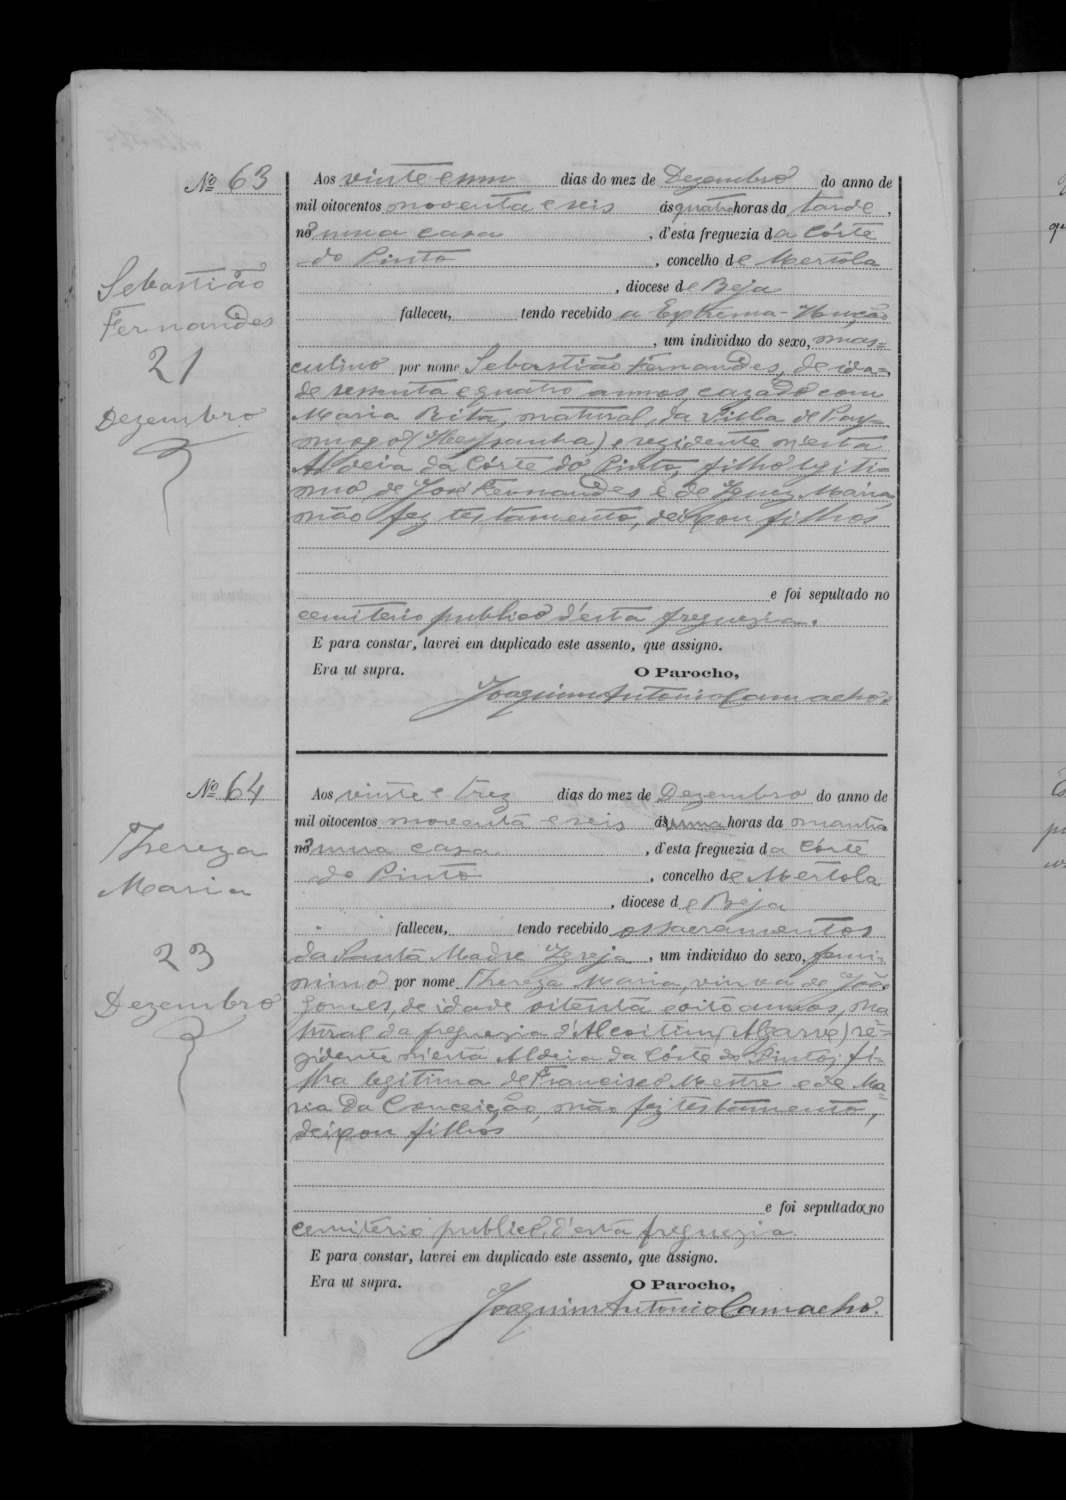 Nº 63
Sebastião
Fernandes
21
Dezembro
Aos vinte e um dias do mez de Dezembro do anno de
mil oitocentos noventa e seis ás quatro horas da tarde,
n'uma casa, d'esta freguezia da Córte
do Pinto, concelho de Mertola
, diocese de Beja
falleceu, tendo recebido a Extrema-Uncção
, um individuo do sexo, mas=
culino por nome Sebastião Fernandes, de ida=
de sessenta e quatro annos cazado com
Maria Rita, natural, da Villa de Pay=
mogo (Hespanha) e rezidente n'esta
Aldeia da Córte do Pinto, filho legiti=
mo de José Fernandes e de Ignez Maria,
não fez testamento, deixou filhos
e foi sepultado no
cemiterio publico d'esta freguezia.
E para constar, lavrei em duplicado este assento, que assigno.
Era ut supra. O Parocho,
Joaquim Antonio Camacho.
Nº 64
Thereza
Maria
23
Dezembro
Aos vinte e trez dias do mez de Dezembro do anno de
mil oitocentos noventa e seis á uma horas da manhã
n'uma casa, d'esta freguezia da Córte
do Pinto, concelho de Mertola
, diocese de Beja
falleceu, tendo recebido os sacramentos
da Santa Madre Igreja, um individuo do sexo, femi=
nino por nome Thereza Maria, viuva de João
Gomes, de idade oitenta e oito annos, na
tural da freguezia d'Alcoitim (Algarve) re=
zidente n'esta Aldeia da Córte do Pinto, fi=
lha legitima de Francisco Mestre e de Ma=
ria da Conceição, não fez testamento,
deixou filhos
e foi sepultada no
cemiterio publico d'esta freguezia.
E para constar, lavrei em duplicado este assento, que assigno.
Era ut supra. O Parocho,
Joaquim Antonio Camacho.